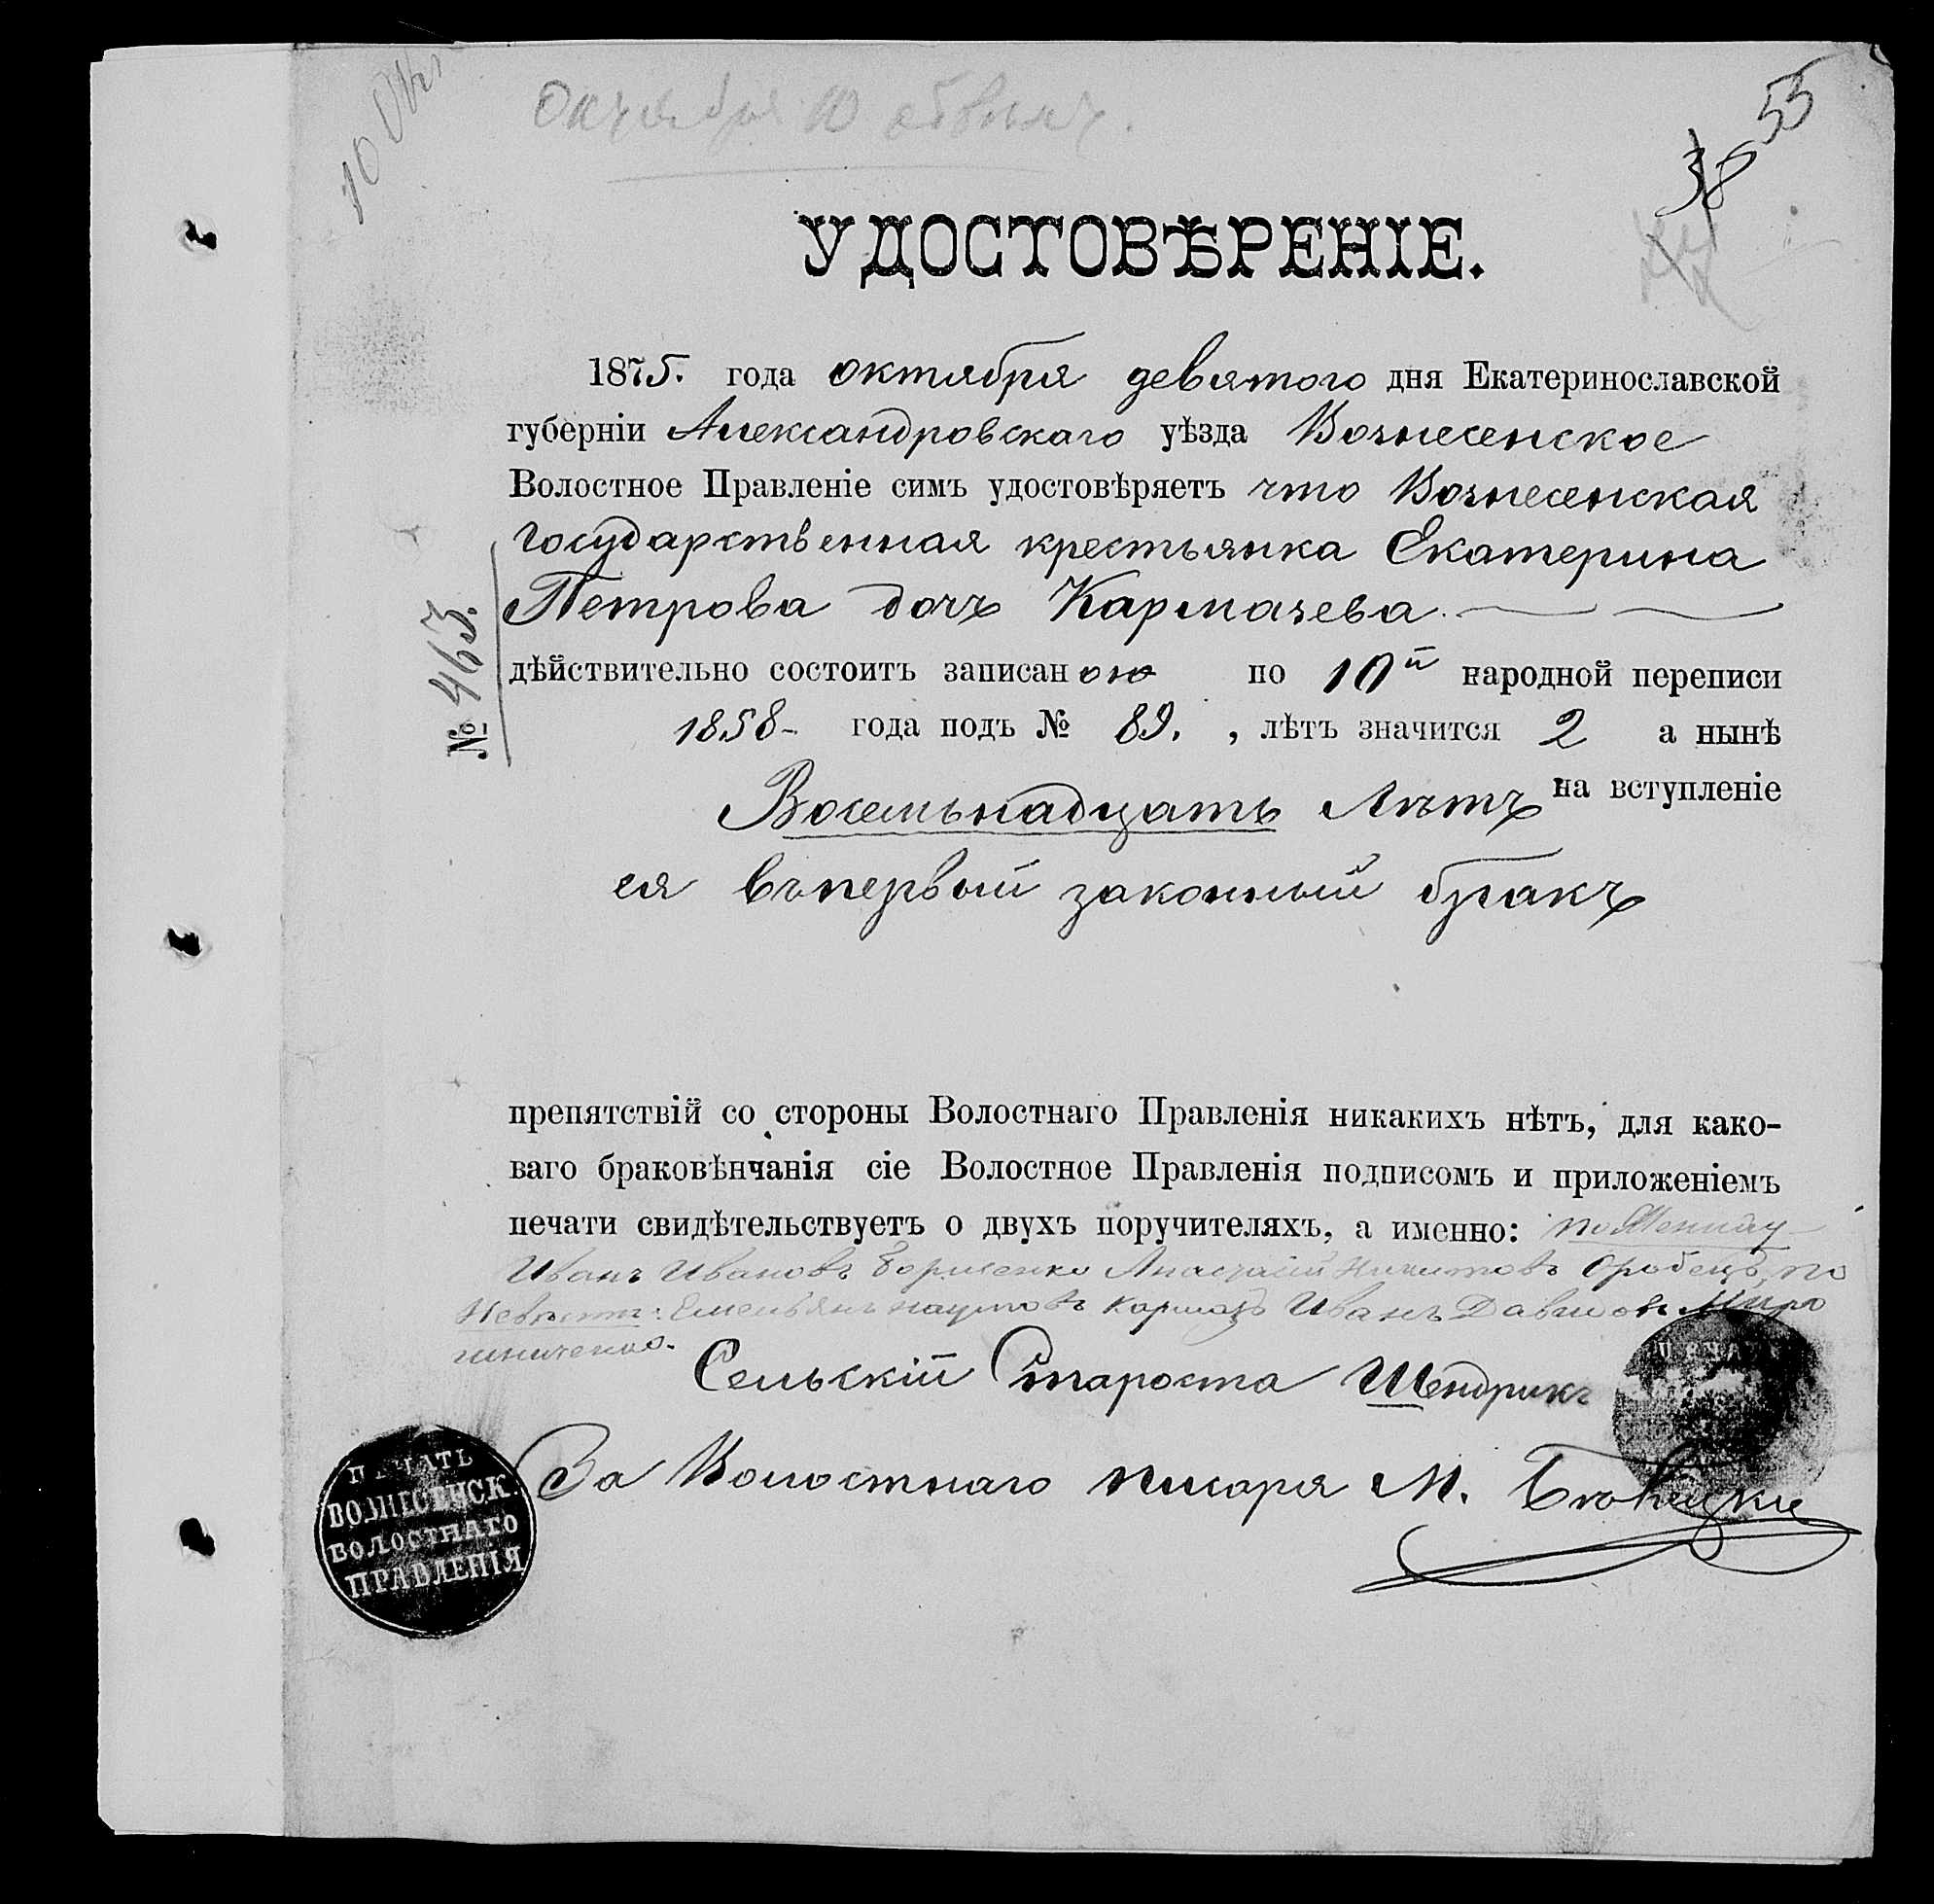 10 Окт
Октября 10 обвѣнч.
55
38
УДОСТОВѢРЕНІЕ.
1875. года октября девятого дня Екатеринославской
губерніи Александровскаго уѣзда Вознесенское
Волостное Правленіе симъ удостовѣряетъ что Вознесенская
государственная крестьянка Екатерина
Петрова дочь Кармазева
№ 463.
дѣйствительно состоитъ записаною по 10й народной переписи
1858 года подъ № 89. , лѣтъ значится 2 а нынѣ
Восемьнадцать лѣтъ на вступленіе
ея въ первый законный бракъ
препятствій со стороны Волостнаго Правленія никакихъ нѣтъ, для како-
ваго браковѣнчанія сіе Волостное Правленія подписомъ и приложеніемъ
печати свидѣтельствуетъ о двухъ поручителяхъ, а именно: по Жениху
Иванъ Ивановъ Борисенко Никитовъ Оробецъ по
Невѣсте: Емельянъ Наумовъ Кармазь Иванъ Давидовъ Миро
шниченко.
Сельскій Староста Шендрикъ
За Волостнаго писаря М.
ПЕЧАТЬ
ВОЗНЕСЕНСК.
ВОЛОСТНАГО
ПРАВЛЕНІЯ